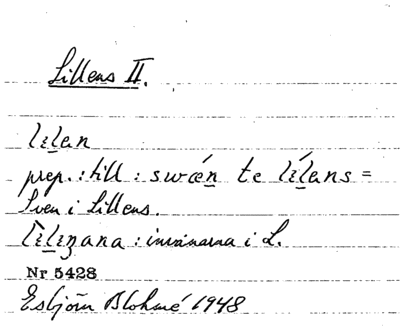 Lillens II.
lɩlan
prep. : till : swǽn te lɩ́lans =
Sven i Lillens.
lɩlɩŋana : invånarna i L.
Nr 5428
Esbjörn Blohmé 1948